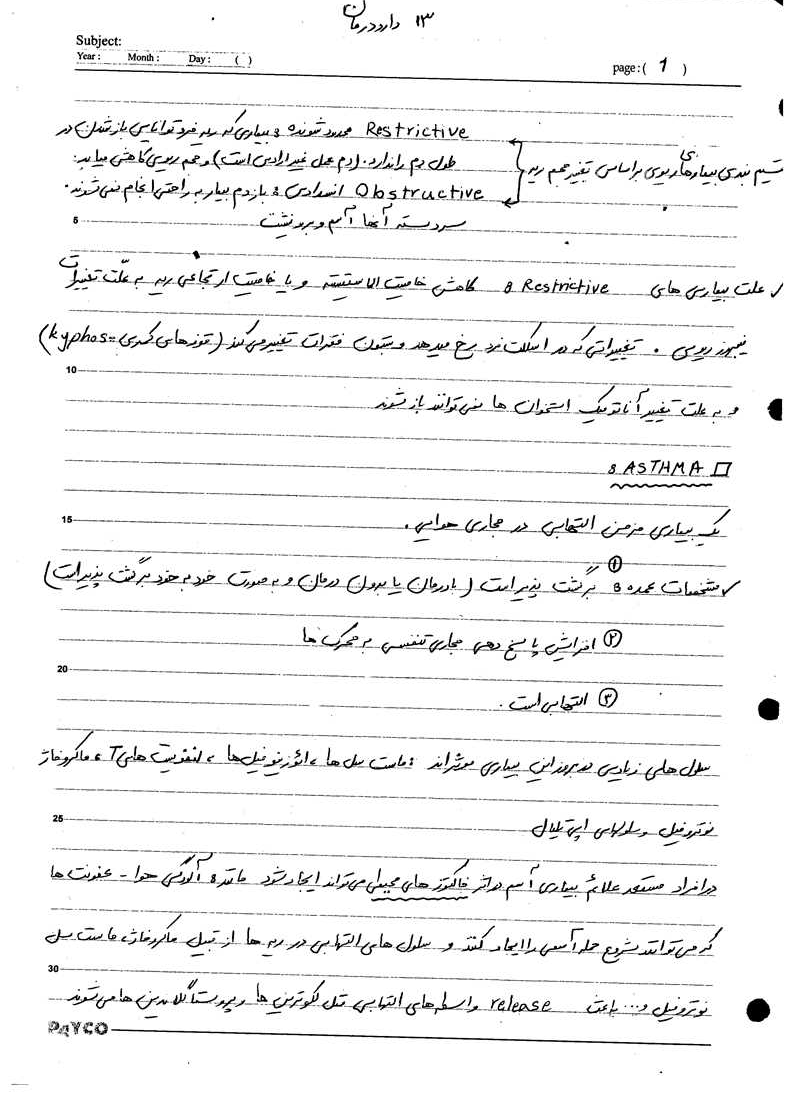 ۱۳ دارودرمان
Subject:
Year : Month : Day : ( )
page : ( 1 )
Restrictive محدود شونده : بیماری که ریه فرد توانایی باز شدن در
طول دم را ندارد. (دم عمل غیر ارادی است) و حجم ریوی کاهش می‌یابد.
تقسیم بندی بیماریهای ریوی بر اساس تغییر حجم ریه
Obstructive انسدادی : بازدم بیمار به راحتی انجام نمی‌شوند.
5
سردسته آنها آسم و برونشیت
✓ علت بیماری های Restrictive : کاهش خاصیت الاستیسیته و یا خاصیت ارتجاعی ریه به علّت تغییرات
فیبروز ریوی . تغییراتی که در اسکلت فرد رخ میدهد و ستون فقرات تغییر می‌کند (قوزهای کمری = kyphos)
10
و به علت تغییر آناتومیک استخوان ها نمی‌توانند باز شوند
□ ASTHMA :
15
یک بیماری مزمن التهابی در مجاری هوایی .
✓ مشخصات عمده : ① برگشت پذیر است (با درمان یا بدون درمان و به صورت خود به خود برگشت پذیر است)
② افزایش پاسخ دهی مجاری تنفسی به محرک ها
20
③ التهابی است .
سلول های زیادی در بروز این بیماری موثراند : ماست سل ها ، ائوزینوفیل‌ها ، لنفوسیت های T ، ماکروفاژ
25
نوتروفیل و سلولهای اپی تلیال
در افراد مستعد علائم بیماری آسم در اثر فاکتورهای محیطی می‌تواند ایجاد شود مانند : آلودگی هوا - عفونت ها
که می توانند شروع حمله آسمی را ایجاد کنند و سلول های التهابی در ریه ها از قبیل ماکروفاژ، ماست سل
30
نوتروفیل و... باعث release واسطه‌های التهابی مثل لکوترین ها و پروستاگلاندین ها می‌شوند
PAYCO